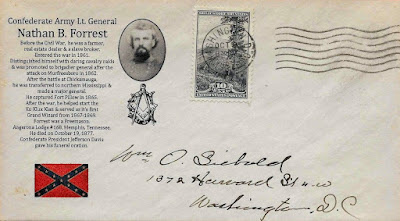 Confederate Army Lt. General
Nathan B. Forrest
Before the Civil War, he was a farmer,
real estate dealer & a slave broker.
Entered the war in 1861.
Distinguished himself with daring cavalry raids
& was promoted to brigadier general after the
attack on Murfreesboro in 1862.
After the battle at Chickamauga,
he was transferred to northern Mississippi &
made a major general.
He captured Fort Pillow in 1865.
After the war, he helped start the
Ku Klux Klan & served as it's first
Grand Wizard from 1867-1869.
Forrest was a Freemason.
Angerona Lodge #168, Memphis, Tennessee.
He died on October 29, 1877.
Confederate President Jefferson Davis
gave his funeral oration.
10
Wm O. Siebold
1372 Harvard St N.W
Washington, D.C